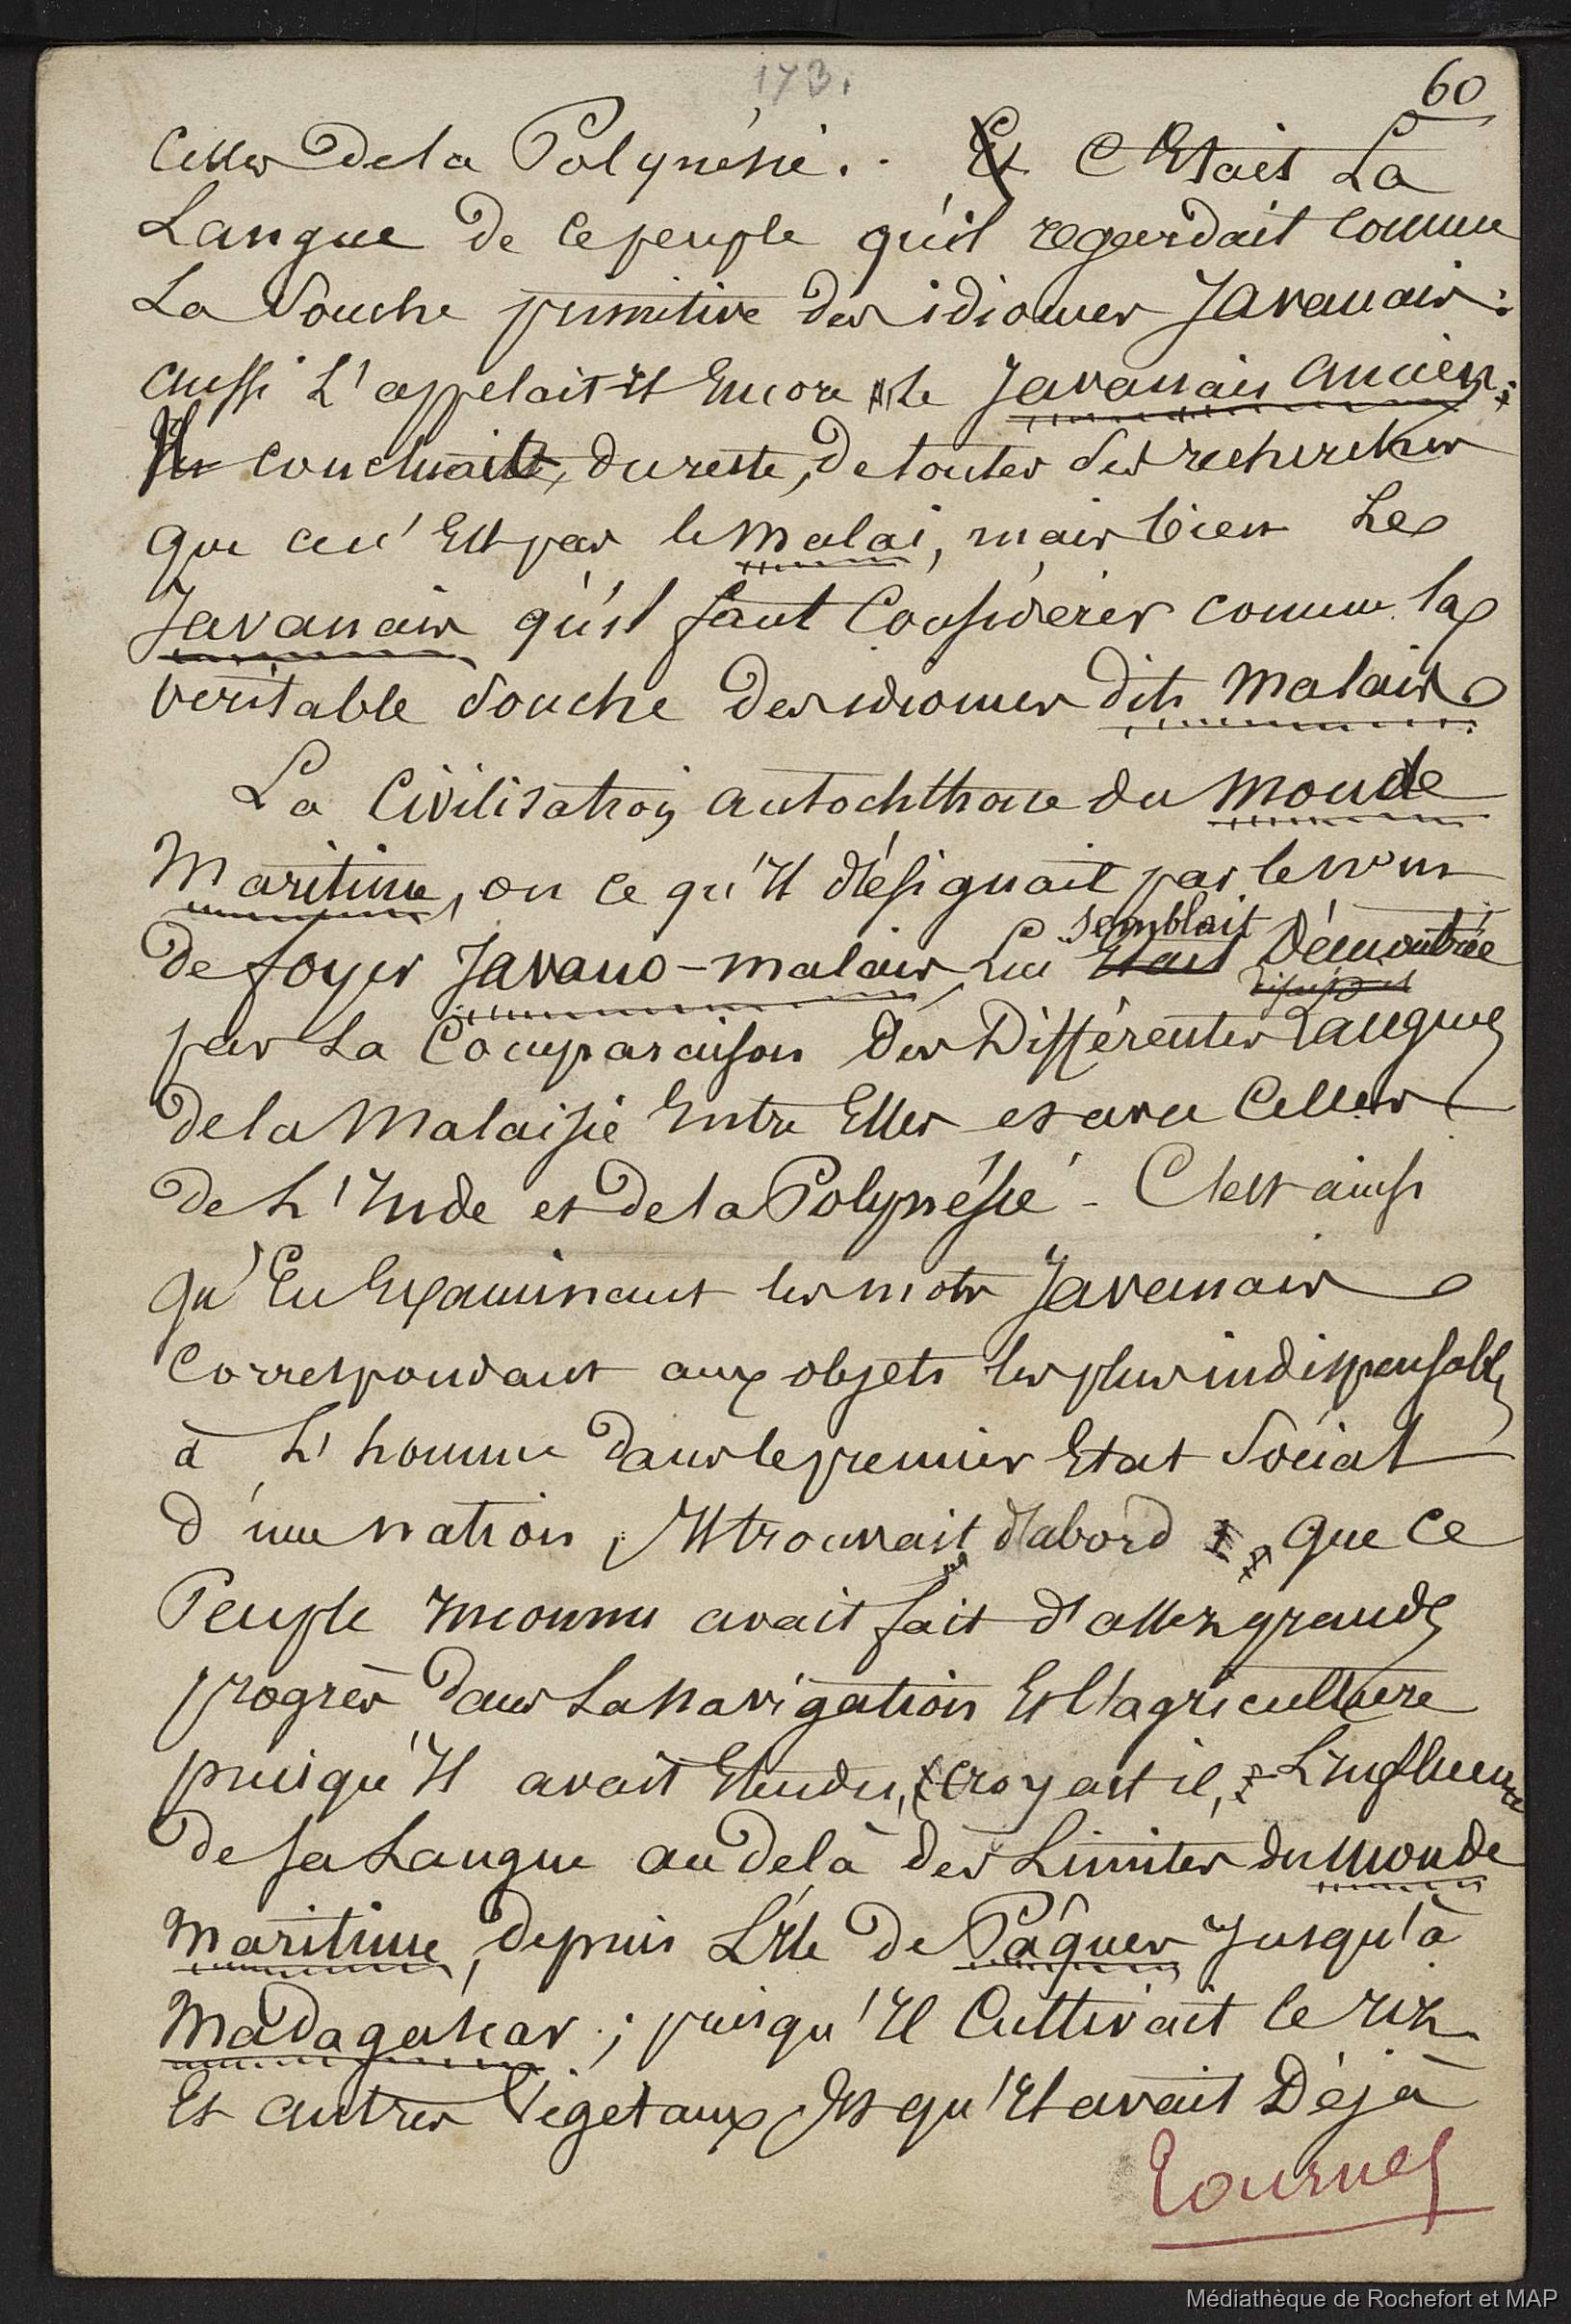 173.
60
Celles de la Polynésie. Et C'Etait La
Langue de ce peuple qu'il regardait comme
La Souche primitive des idiomes Javanais:
aussi L'appelait-il Encore le Javanais ancien;
Il concluait, du reste, de toutes Ses recherches
que ce n'Est pas le Malai, mais bien Le
Javanais qu'il faut Considérer comme la
veritable Souche des idiomes dits Malais
La Civilisation autochthone du Monde
Maritime, ou ce qu'Il désignait par le nom
semblait
de foyer Javano-malais, Lui Etait Démontrée
par La Comparaison des Différentes Langues
de la Malaisie Entre Elles et avec Celles
de L'Inde et de la Polynésie - C'est ainsi
qu'En Examinant les mots Javanais
Correspondant aux objets les plus indispensables
à L'homme dans le premier Etat Social
d'une nation, Il trouvait d'abord que ce
Peuple Inconnu avait fait d'assez grands
progrès dans La Navigation Et l'agriculture
puisqu'Il avait Etendu, croyait il, L'influence
de sa Langue au delà des Limites du Monde
Maritime, depuis L'Ile de Pâques Jusqu'à
Madagascar; puisqu'Il Cultivait le riz
Et autres Végetaux Et qu'Il avait Déjà
Tournez
Médiathèque de Rochefort et MAP